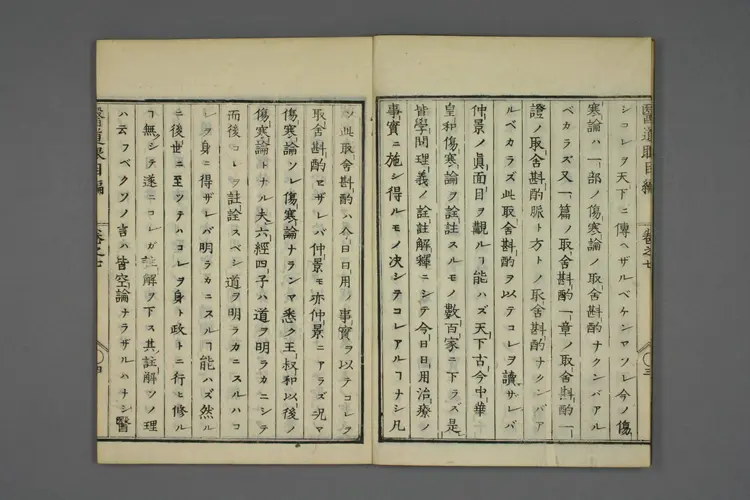 醫道眼目編 卷之七 三
シコレヲ天下ニ傳ヘザルベケンヤソレ今ノ傷
寒論ハ一部ノ傷寒論ノ取舍斟酌ナクンバアル
ベカラズ又一篇ノ取舍斟酌一章ノ取舍斟酌一
證ノ取舍斟酌脈ト方トノ取舍斟酌ナクンバア
ルベカラズ此取舍斟酌ヲ以テコレヲ讀ザレバ
仲景ノ眞面目ヲ觀ルヿ能ハズ天下古今中華
皇和傷寒論ヲ詮註スルモノ數百家ニ下ラズ是
皆學問理義ノ詮註解釋ニシテ今日日用治療ノ
事實ニ施シ得ルモノ决シテコレアルヿナシ凡
ソ此取舍斟酌ハ今日日用ノ事實ヲ以テコレヲ
取舍斟酌セザレバ仲景モ亦仲景ニアラズ况ヤ
傷寒論ソレ傷寒論ナランヤ悉ク王叔和以後ノ
傷寒論トナル夫六經四子ハ道ヲ明ラカニシテ
而後コレヲ註詮スベシ道ヲ明ラカニスルハコ
レヲ身ニ得ザレバ明ラカニスルヿ能ハズ然ル
ニ後世ニ至ツテハコレヲ身ト政トニ行ヒ修ル
ヿ無シテ遂ニコレガ註解ヲ下ス其註解ソノ理
ハ云フベクソノ言ハ皆空論ナラザルハナシ醫
醫道眼目編 卷之七 四